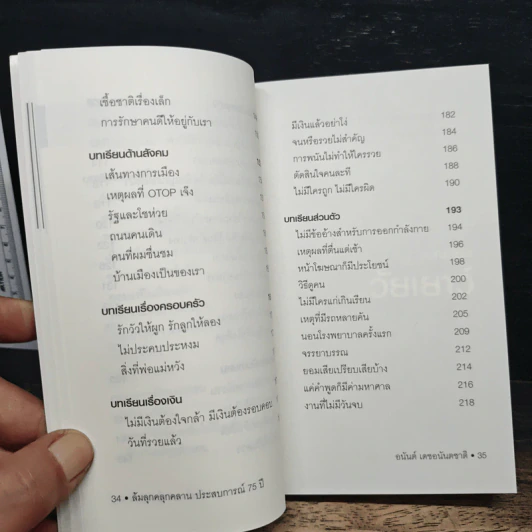 เชื้อชาติเรื่องเล็ก
การรักษาคนดีให้อยู่กับเรา
บทเรียนด้านสังคม
เส้นทางการเมือง
เหตุผลที่ OTOP เจ๊ง
รัฐและโชห่วย
ถนนคนเดิน
คนที่ผมชื่นชม
บ้านเมืองเป็นของเรา
บทเรียนเรื่องครอบครัว
รักวัวให้ผูก รักลูกให้ลอง
ไม่ประคบประหงม
สิ่งที่พ่อแม่หวัง
บทเรียนเรื่องเงิน
ไม่มีเงินต้องใจกล้า มีเงินต้องรอบคอบ
วันที่รวยแล้ว
34 • ล้มลุกคลุกคลาน ประสบการณ์ 75 ปี
มีเงินแล้วอย่าโง่ 182
จนหรือรวยไม่สำคัญ 184
การพนันไม่ทำให้ใครรวย 186
ตัดสินใจคนละที 188
ไม่มีใครถูก ไม่มีใครผิด 190
บทเรียนส่วนตัว 193
ไม่มีข้ออ้างสำหรับการออกกำลังกาย 194
เหตุผลที่ตื่นแต่เช้า 196
หน้าโฆษณาก็มีประโยชน์ 198
วิธีดูคน 200
ไม่มีใครแก่เกินเรียน 202
เหตุที่มีรถหลายคัน 205
นอนโรงพยาบาลครั้งแรก 209
จรรยาบรรณ 212
ยอมเสียเปรียบเสียบ้าง 214
แค่คำพูดก็มีค่ามหาศาล 216
งานที่ไม่มีวันจบ 218
อนันต์ เดชอนันตชาติ • 35